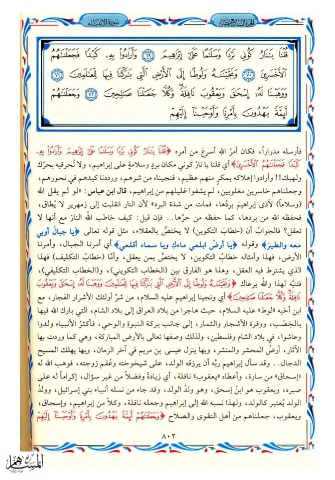 الجزء السابع عشر
سورة الأنبياء
قُلْنَا يَنَارُ كُونِي بَرْدًا وَسَلَامًا عَلَىٰ إِبْرَاهِيمَ ۝ وَأَرَادُوا بِهِ كَيْدًا فَجَعَلْنَاهُمُ
الْأَخْسَرِينَ ۝ وَنَجَّيْنَاهُ وَلُوطًا إِلَى الْأَرْضِ الَّتِي بَارَكْنَا فِيهَا لِلْعَالَمِينَ ۝
وَوَهَبْنَا لَهُ إِسْحَاقَ وَيَعْقُوبَ نَافِلَةً وَكُلًّا جَعَلْنَا صَالِحِينَ ۝ وَجَعَلْنَاهُمْ
أَئِمَّةً يَهْدُونَ بِأَمْرِنَا وَأَوْحَيْنَا إِلَيْهِمْ
فأرسله مدراراً، فكان أمرُ الله أسرعَ من أمره ﴿قُلْنَا يَنَارُ كُونِي بَرْدًا وَسَلَامًا عَلَىٰ إِبْرَاهِيمَ وَأَرَادُوا بِهِ
كَيْدًا فَجَعَلْنَاهُمُ الْأَخْسَرِينَ﴾ أي قلنا يا نارُ كوني مكانَ بردٍ وسلامةٍ على إبراهيم، ولا تُحرقيه بحرِّك
ولهبك!! وأرادوا إهلاكه بمكرٍ منهم عظيم، فنجيناه من شرهم، ورددنا كيدهم في نحورهم،
وجعلناهم خاسرين مغلوبين، لم يشفوا غليلهم من إبراهيم، قال ابن عباس: «لو لم يقل الله
(وسلاماً) لأذى إبراهيمَ بردُها، فمات من شدة البرد» لأن النار انقلبت إلى زمهرير لا يُطاق،
فحفظه الله من بردها، كما حفظه من حرِّها.. فإن قيل: كيف خاطب الله النارَ مع أنها لا
تعقل؟ فالجوابُ أن (خطاب التكوين) لا يختصُّ بالعقلاء، مثل قوله تعالى ﴿يا جبالُ أوبي
معه والطيرَ﴾ وقوله ﴿يا أرضُ ابلعي ماءكِ ويا سماء أقلعي﴾ أي أمرنا الجبال، وأمرنا
الأرض، فهذا وأمثاله خطابُ التكوين، لا يختصُّ بمن يعقل، وأمَّا (خطابُ التكليف) فهذا
الذي يشترط فيه العقل، وهذا هو الفارق بين (الخطاب التكويني)، و(الخطاب التكليفي)،
فتنبَّه لهذا والله يرعاك ﴿وَنَجَّيْنَاهُ وَلُوطًا إِلَى الْأَرْضِ الَّتِي بَارَكْنَا فِيهَا لِلْعَالَمِينَ وَوَهَبْنَا لَهُ إِسْحَاقَ وَيَعْقُوبَ
نَافِلَةً وَكُلًّا جَعَلْنَا صَالِحِينَ﴾ أي ونجينا إبراهيم عليه السلام، من شرِّ أولئك الأشرار الفجار، مع
ابن أخيه «لوط» عليه السلام، حيث هاجرا من بلاد العراق إلى بلاد الشام، التي بارك الله فيها
بالخِصْب، ووفرة الأشجار والثمار، إلى جانب بركة النبوة والوحي، فأكثرُ الأنبياء ولدوا
وعاشوا، في بلاد الشام وفلسطين، ولذلك وصفها تعالى بالأرض المباركة، وهي كما وردت بها
الآثار، أرضُ المحشر والمنشر، وبها ينزل عيسى بن مريم في آخر الزمان، وبها يهلك المسيح
الدجال.. وقد سأل إبراهيم ربَّه أن يرزقه الولد، على شيخوخته وعُقم زوجته، فوهب الله له
«إسحاق» من سارة، وأعطاه «يعقوب» نافلة، أي زيادةً وفضلاً من غير سؤال، إكراماً له على
صبره، ويعقوب هو ابنُ إسحق، وهو ولدُ الولد، وقد جاء من نسله أنبياء بني إسرائيل، وولدُ
الولد يُعتبر كالولد، ولهذا نسبه الله إلى إبراهيم وجعله نافلة، وكلاً من إبراهيم، وإسحاق،
ويعقوب، جعلناهم من أهل التقوى والصلاح ﴿وَجَعَلْنَاهُمْ أَئِمَّةً يَهْدُونَ بِأَمْرِنَا وَأَوْحَيْنَا إِلَيْهِمْ
٨٠٢